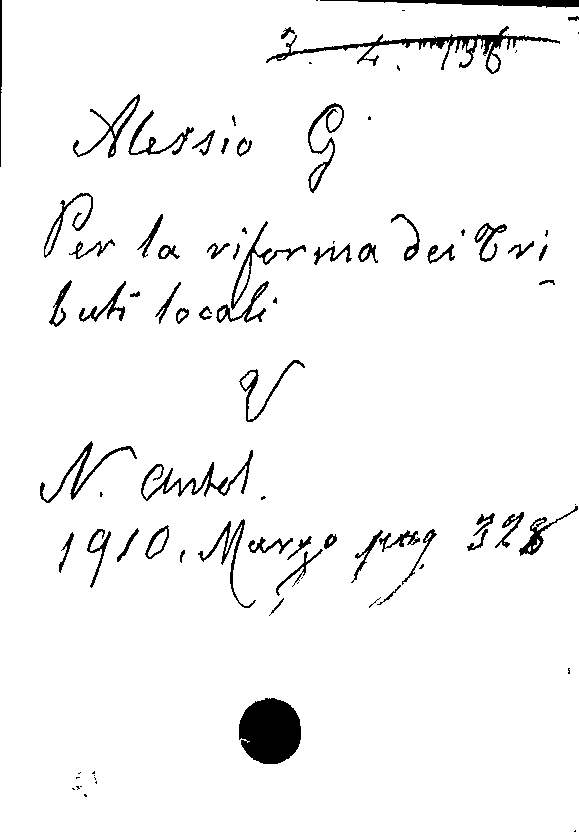 3. 4. 136
Alessio G.
Per la riforma dei Tri-
buti locali
V
N. Antol.
1910. Marzo pag. 328